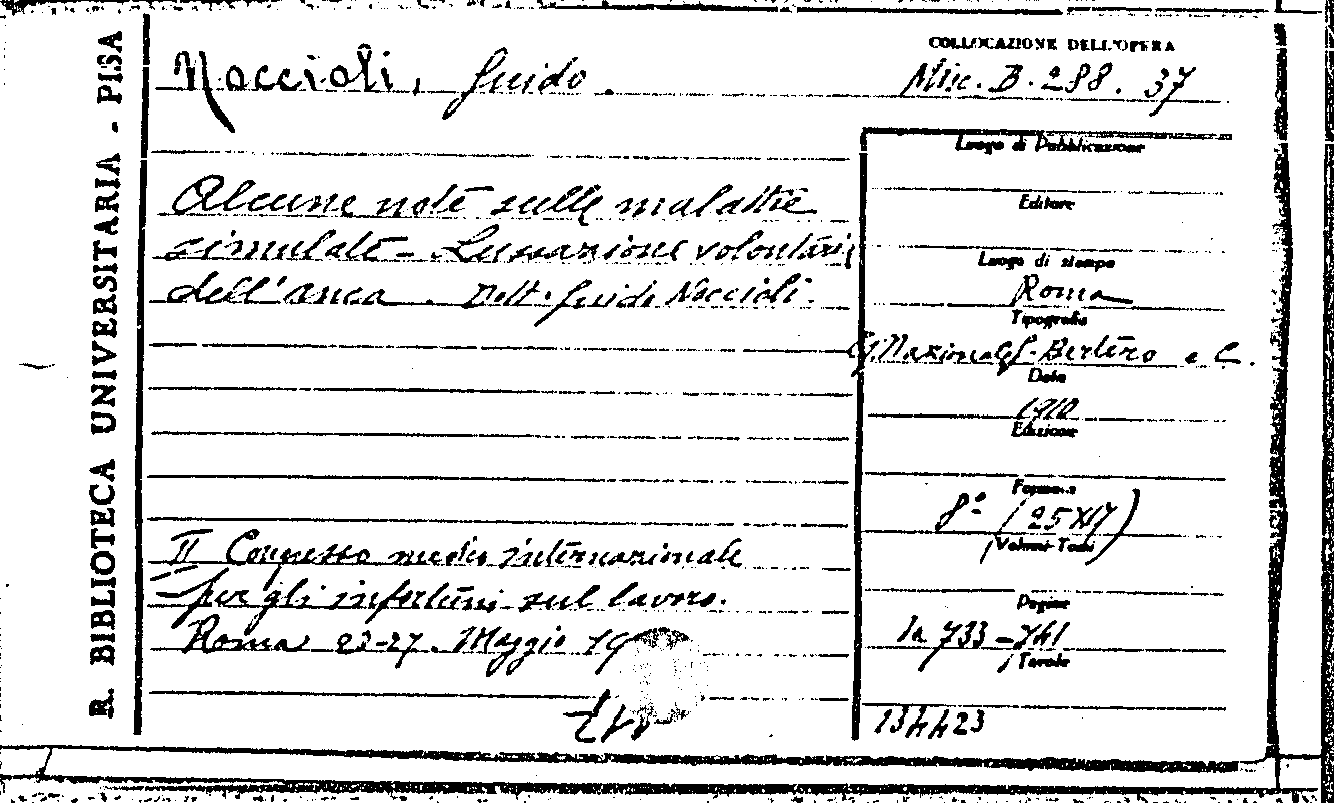 R. BIBLIOTECA UNIVERSITARIA - PISA
Noccioli, Guido.
COLLOCAZIONE DELL'OPERA
Misc. B. 288. 37
Alcune note sulle malattie
simulate - Lussazione volontaria
dell'anca. Dott. Guido Noccioli.
II Congresso medico internazionale
per gli infortuni sul lavoro.
Roma 23-27. Maggio 19
Luogo di Pubblicazione
Editore
Luogo di stampa
Roma
Tipografia
Nazionale G. Bertero e C.
Data
1910
Edizione
Formato
8° (25 X 17)
Volumi Tomi
Pagine
733-741
Tavole
134423